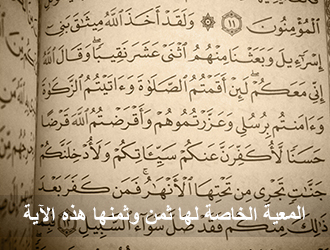 ٱلْمُؤْمِنُونَ ۝١١ ۞ وَلَقَدْ أَخَذَ ٱللَّهُ مِيثَٰقَ بَنِىٓ
إِسْرَٰٓءِيلَ وَبَعَثْنَا مِنْهُمُ ٱثْنَىْ عَشَرَ نَقِيبًا ۖ وَقَالَ ٱللَّهُ
إِنِّى مَعَكُمْ ۖ لَئِنْ أَقَمْتُمُ ٱلصَّلَوٰةَ وَءَاتَيْتُمُ ٱلزَّكَوٰةَ
وَءَامَنتُم بِرُسُلِى وَعَزَّرْتُمُوهُمْ وَأَقْرَضْتُمُ ٱللَّهَ قَرْضًا
حَسَنًا لَّأُكَفِّرَنَّ عَنكُمْ سَيِّـَٔاتِكُمْ وَلَأُدْخِلَنَّكُمْ
جَنَّٰتٍ تَجْرِى مِن تَحْتِهَا ٱلْأَنْهَٰرُ ۚ فَمَن كَفَرَ بَعْدَ
المعية الخاصة لها ثمن وثمنها هذه الآية
ذَٰلِكَ مِنكُمْ فَقَدْ ضَلَّ سَوَآءَ ٱلسَّبِيلِ ۝١٢